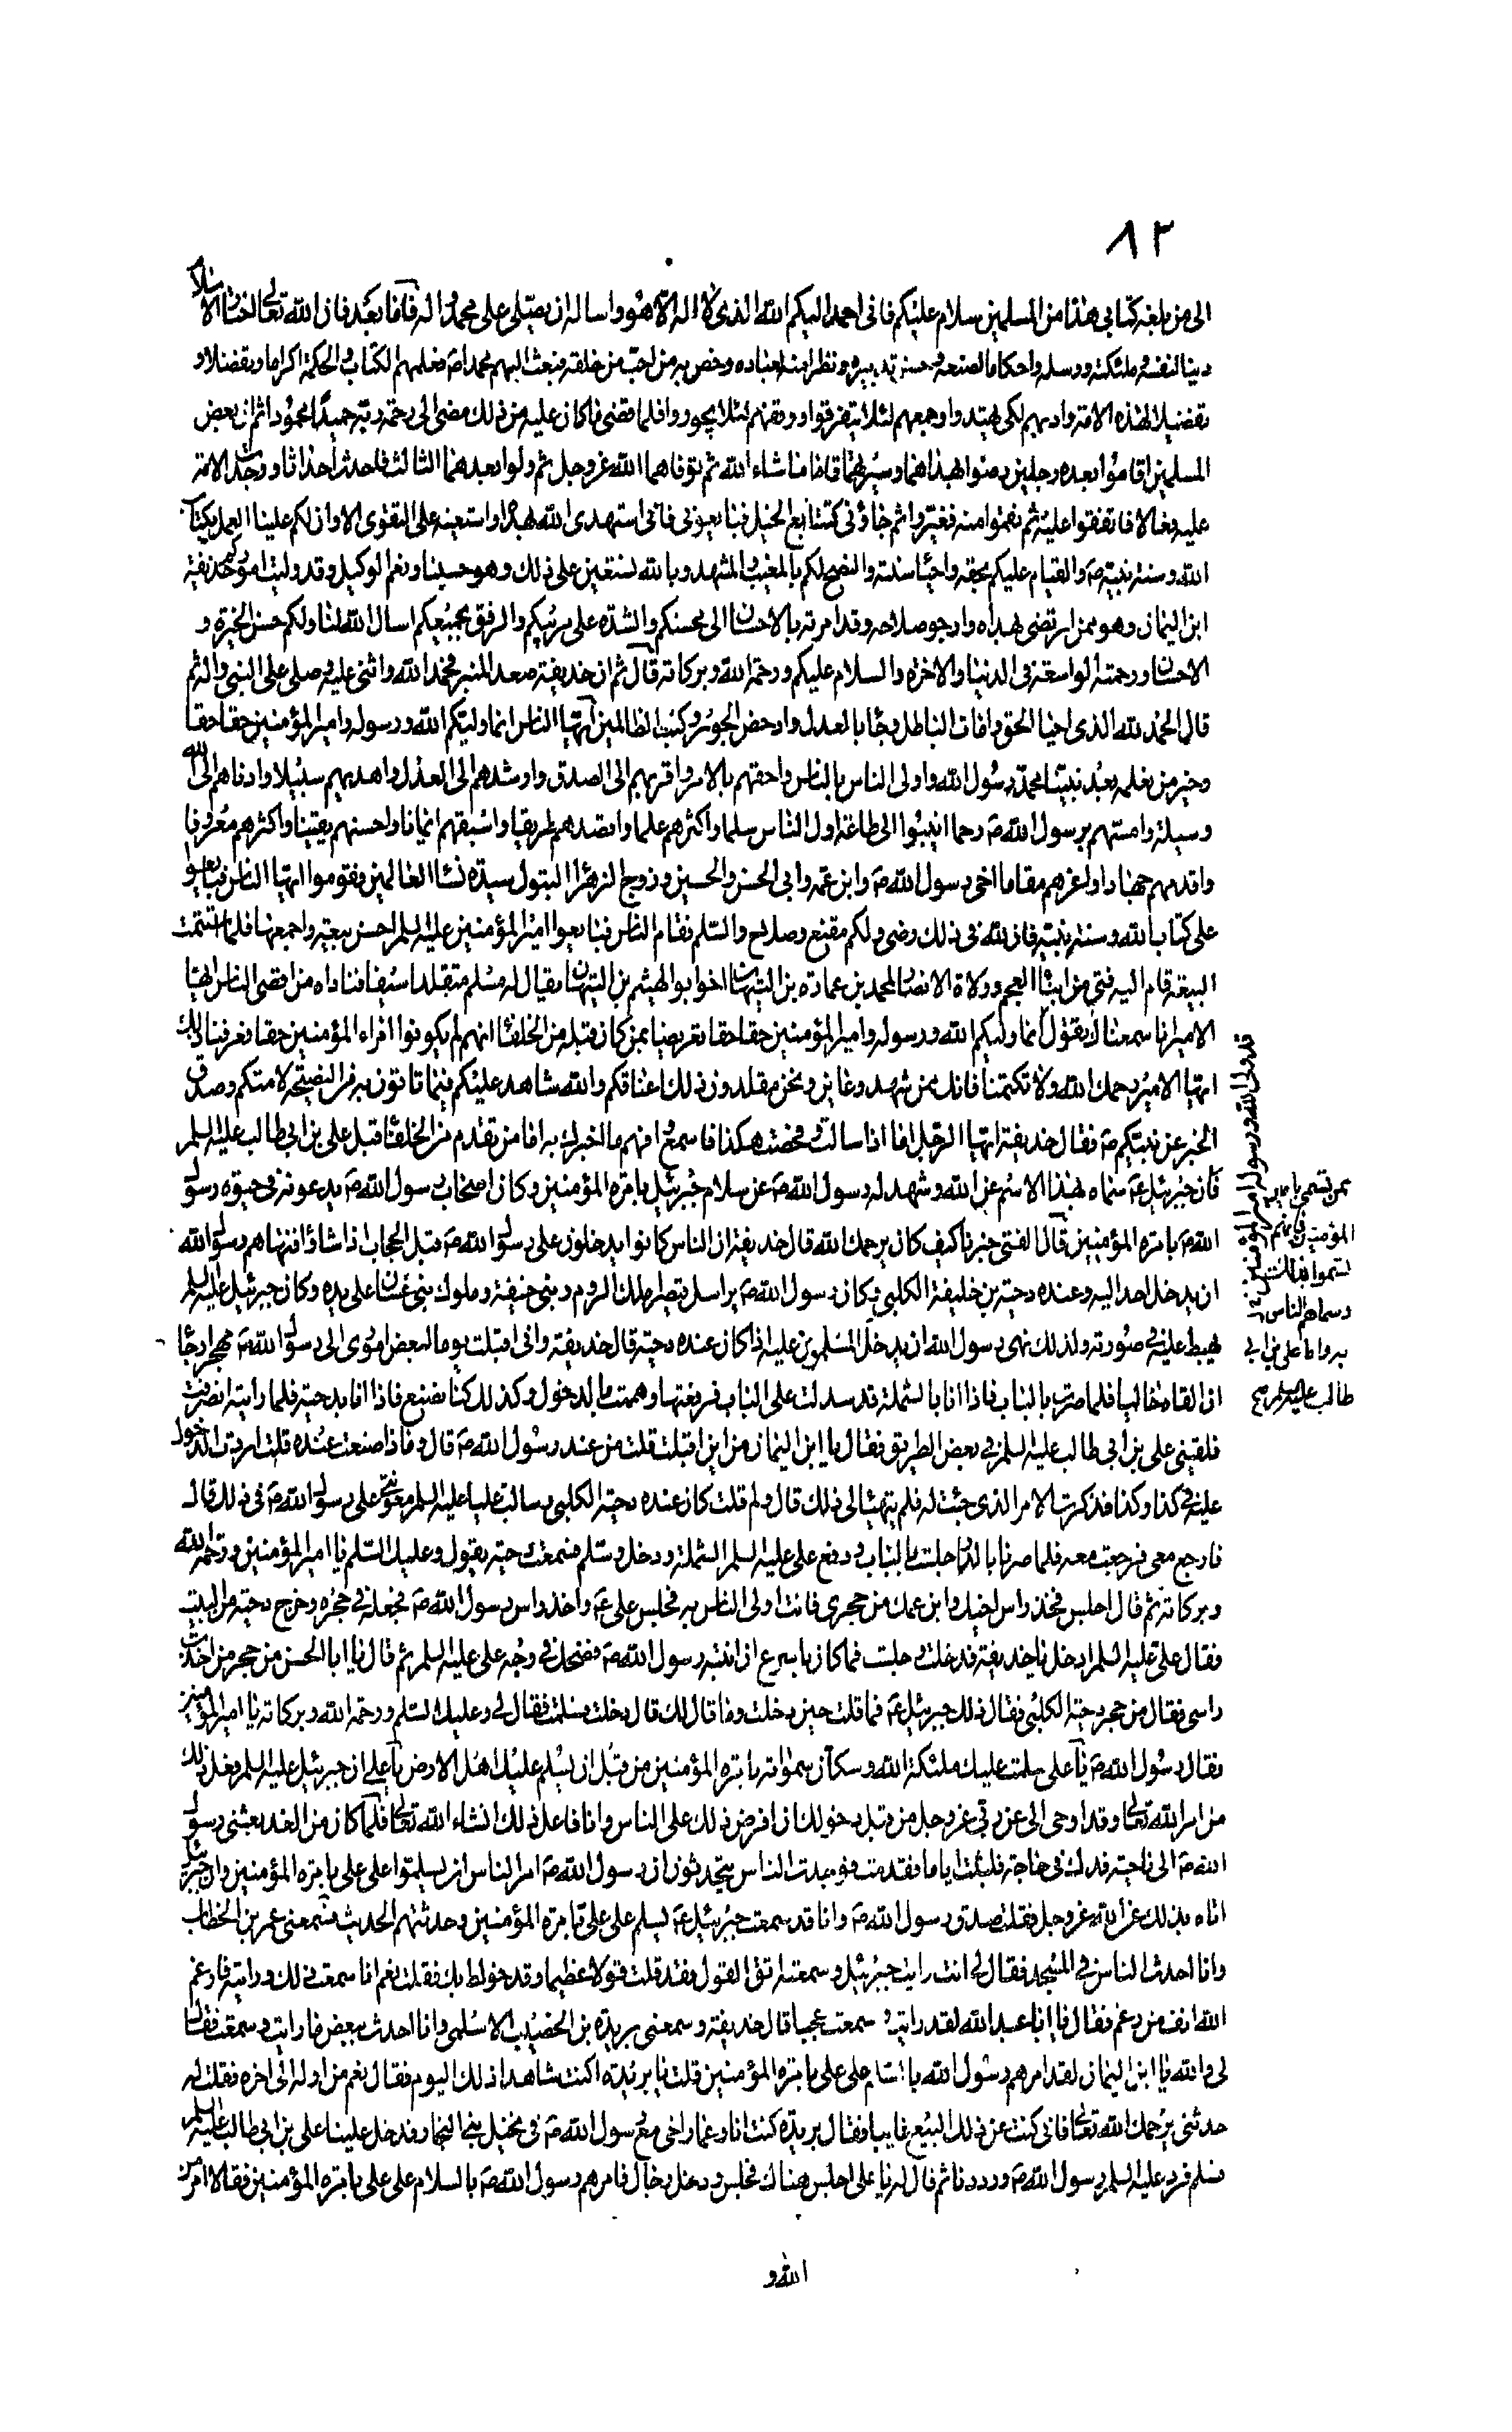 ٨٣
الى من بلغه كتابي هذا من المسلمين سلام عليكم فاني احمد اليكم الله الذي لا اله الا هو واساله ان يصلي على محمد واله فاما بعد فان الله تعالى اختار الاسلام
دينا لنفسه وملئكته ورسله واحكاما لصنعه وحسن تدبيره ونظرا منه لعباده وخص به من احب من خلقه فبعث اليهم محمدا ص فعلمهم الكتاب والحكمة اكراما وتفضلا و
تفضيلا لهذه الامة وادبهم لكي يهتدوا وجمعهم لئلا يتفرقوا ووقفهم لئلا يجوروا فلما قضى ما كان عليه من ذلك مضى الى رحمة ربه حميدا محمودا ثم ان بعض
المسلمين اقاموا بعده رجلين رضوا بهداهما وسيرتهما قاما ما شاء الله ثم توفاهما الله عز وجل ثم ولوا بعدهما الثالث فاحدث احداثا ووجدت الامة
عليه فعالا فاتفقوا عليه ثم نقموا منه فغيروا ثم جاؤني كتتابع الخيل فبايعوني فاني استهدى الله بهداه واستعينه على التقوى الا وان لكم علينا العمل بكتاب
الله وسنة نبيه ص والقيام عليكم بحقه واحياء سنته والنصح لكم بالمغيب والمشهد وبالله نستعين على ذلك وهو حسبنا ونعم الوكيل وقد وليت اموركم حذيفة
ابن اليمان وهو ممن ارتضى بهداه وارجو صلاحه وقد امرته بالاحسان الى محسنكم والشدة على مريبكم والرفق بجميعكم اسال الله لنا ولكم حسن الخيرة و
الاحسان ورحمته الواسعة في الدنيا والاخرة والسلام عليكم ورحمة الله وبركاته قال ثم ان حذيفة صعد المنبر فحمد الله واثنى عليه وصلى على النبي واله ثم
قال الحمد لله الذي احيا الحق وامات الباطل وجاء بالعدل وادحض الجور وكبت الظالمين ايها الناس انما وليكم الله ورسوله وامير المؤمنين حقا حقا
وخير من نعلمه بعد نبينا محمد رسول الله واولى الناس بالناس واحقهم بالامر واقربهم الى الصدق وارشدهم الى العدل واهديهم سبيلا وادناهم الى الله
وسيلة وامسهم برسول الله ص رحما انيبوا الى طاعة اول الناس سلما واكثرهم علما واقصدهم طريقا واسبقهم ايمانا واحسنهم يقينا واكثرهم معروفا
واقدمهم جهادا واعزهم مقاما اخي رسول الله ص وابن عمه وابي الحسن والحسين وزوج الزهراء البتول سيدة نساء العالمين فقوموا ايها الناس فبايعوا
على كتاب الله وسنة نبيه فان لله في ذلك رضى ولكم مقنع وصلاح والسلم فقام الناس فبايعوا امير المؤمنين عليه السلم احسن بيعة واجمعها فلما استتمت
البيعة قام اليه فتى من ابناء العجم وولاة الانصار لمحمد بن عمارة بن التيهان اخو ابو الهيثم بن التيهان يقال له مسلم متقلدا سيفا فناداه من اقصى الناس ايها
الامير انا سمعناك تقول انما وليكم الله ورسوله وامير المؤمنين حقا حقا تعريضا بمن كان قبله من الخلفاء انهم لم يكونوا امراء المؤمنين حقا فعرفنا ذلك
ايها الامير رحمك الله ولا تكتمنا فانك ممن شهد وعاين ونحن مقلدون ذلك اعناقكم والله شاهد عليكم فيما تاتون به من النصيحة لامتكم وصدق
الخبر عن نبيكم ص فقال حذيفة ايها الرجل اما اذا سالت وفحصت هكذا فاسمع وافهم ما اخبرك به اما من تقدم من الخلفاء قبل علي بن ابي طالب عليه السلم
فان جبرئيل ع سماه بهذا الاسم عن الله وشهد له رسول الله ص عن سلام جبرئيل بامرة المؤمنين وكان اصحاب رسول الله ص يدعونه في حيوة رسول
الله ص بامرة المؤمنين قال الفتى خبرنا كيف كان يرحمك الله قال حذيفة ان الناس كانوا يدخلون على رسول الله ص قبل الحجاب اذا شاؤا فنهاهم رسول الله
ان يدخل احد اليه وعنده دحية بن خليفة الكلبي وكان رسول الله ص يراسل قيصر ملك الروم وبني حنيفة وملوك بني غسان على يده وكان جبرئيل عليه السلم
يهبط عليه في صورته ولذلك نهى رسول الله ان يدخل المسلمون عليه اذا كان عنده دحية قال حذيفة واني اقبلت يوما لبعض اموري الى رسول الله ص مهجرا رجاء
ان القاه خاليا فلما صرت بالباب فاذا انا بالشملة قد سدلت على الباب فرفعتها وهممت بالدخول وكذلك كنا نصنع فاذا انا بدحية فلما رايته انصرفت
فلقيني علي بن ابي طالب عليه السلم في بعض الطريق فقال يا ابن اليمان من اين اقبلت قلت من عند رسول الله ص قال وماذا صنعت عنده قلت اردت الدخول
عليه في كذا وكذا فذكرت الامر الذي جئت له فلم يتهيا لي ذلك قال ولم قلت كان عنده دحية الكلبي وسالت عليا عليه السلم معونتي على رسول الله ص في ذلك قال
فارجع معي فرجعت معه فلما صرنا بالدار جلست بالباب ورفع علي عليه السلم الشملة ودخل وسلم فسمعت دحية يقول وعليك السلم يا امير المؤمنين ورحمة الله
وبركاته ثم قال اجلس فخذ راس اخيك وابن عمك من حجري فانت اولى الناس به فجلس علي ع واخذ راس رسول الله ص فجعله في حجره وخرج دحية من البيت
فقال علي عليه السلم ادخل يا حذيفة فدخلت وجلست فما كان باسرع ان انتبه رسول الله ص فضحك في وجه علي عليه السلم ثم قال يا ابا الحسن من حجر من اخذت
راسي فقال من حجر دحية الكلبي فقال ذلك جبرئيل ع فما قلت حين دخلت وما قال لك قال دخلت فسلمت فقال لي وعليك السلم ورحمة الله وبركاته يا امير المؤمنين
فقال رسول الله ص يا علي سلمت عليك ملئكة الله وسكان سمواته بامرة المؤمنين من قبل ان يسلم عليك اهل الارض يا علي ان جبرئيل عليه السلم فعل ذلك
من امر الله تعالى وقد اوحى الى عن ربي عز وجل من قبل دخولك ان افرض ذلك على الناس وانا فاعل ذلك انشاء الله تعالى فلما كان من الغد بعثني رسول
الله ص الى ناحية فدك في حاجة فلبثت اياما فقدمت فوجدت الناس يتحدثون ان رسول الله ص امر الناس ان يسلموا على علي بامرة المؤمنين وان جبرئيل
اتاه بذلك عن الله عز وجل فقلت صدق رسول الله ص وانا قد سمعت جبرئيل ع يسلم على علي بامرة المؤمنين وحدثتهم الحديث فسمعني عمر بن الخطاب
وانا احدث الناس في المسجد فقال لي انت رايت جبرئيل وسمعته اتق القول فقد قلت قولا عظيما وقد خولط بك فقلت نعم انا سمعت ذلك ورايته فارغم
الله انف من رغم فقال يا ابا عبد الله لقد رايت و سمعت عجبا قال حذيفة وسمعني بريدة بن الحصيب الاسلمي وانا احدث ببعض ما رايت وسمعت فقال
لي والله يا ابن اليمان لقد امرهم رسول الله بالسلام على علي بامرة المؤمنين قلت يا بريدة اكنت شاهدا ذلك اليوم فقال نعم من اوله الى اخره فقلت له
حدثني يرحمك الله تعالى فاني كنت عن ذلك اليوم غايبا فقال بريدة كنت انا وعمار اخي مع رسول الله ص في نخيل بني النجار فدخل علينا علي بن ابي طالب عليه السلم
فسلم فرد عليه السلم رسول الله ص ورددنا ثم قال له يا علي اجلس هناك فجلس ودخل رجال فامرهم رسول الله ص بالسلام على علي بامرة المؤمنين فقالا امن
الله و
قد ولى الله ورسوله امير المؤمنين
ممن تسمى بامير
المؤمنين فانهم
تسموا بذلك
وسماهم الناس
به واما علي بن ابي
طالب عليه السلم صح